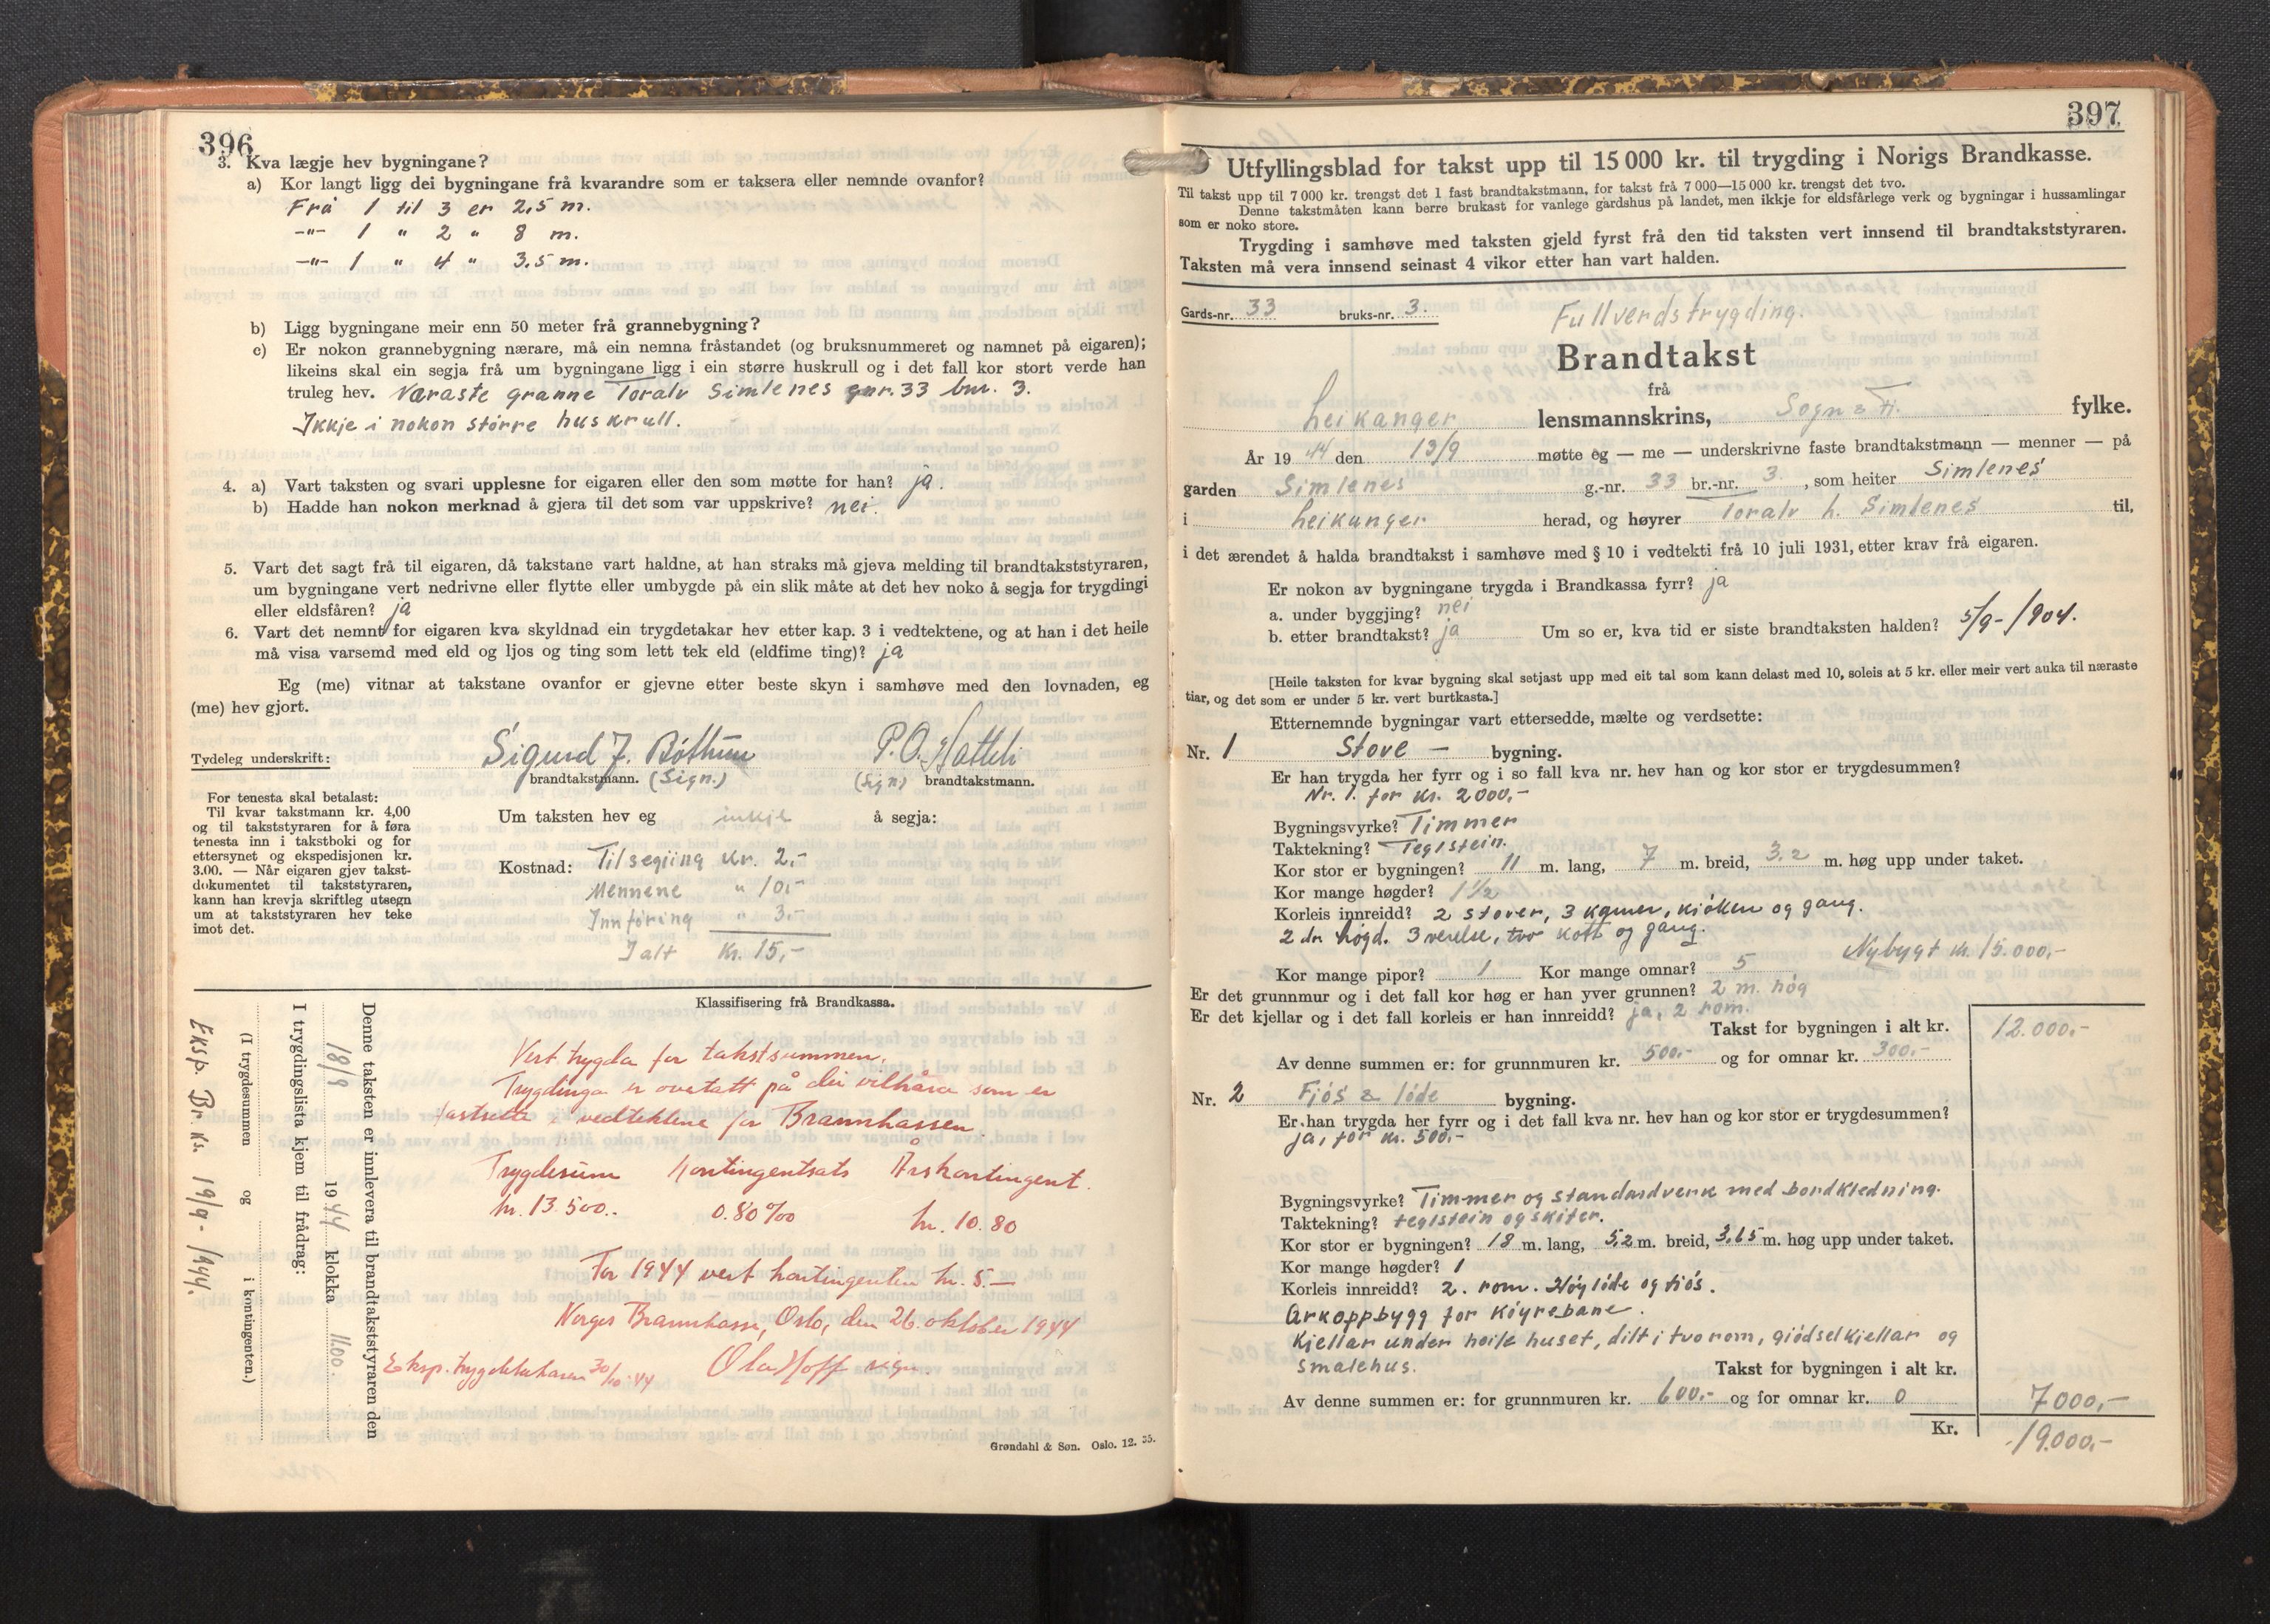 396
3. Kva lægje hev bygningane?
a) Kor langt ligg dei bygningane frå kvarandre som er taksera eller nemnde ovanfor?
Frå 1 til 3 er 2,5 m.
-"- 1 " 2 " 8 m.
-"- 1 " 4 " 3.5 m.
b) Ligg bygningane meir enn 50 meter frå grannebygning?
c) Er nokon grannebygning nærare, må ein nemna fråstandet (og bruksnummeret og namnet på eigaren);
likeins skal ein segja frå um bygningane ligg i ein større huskrull og i det fall kor stort verde han
truleg hev. Næraste granne Toralv Simlenes gnr. 33 bnr. 3.
Ikkje i nokon større huskrull.
4. a) Vart taksten og svari upplesne for eigaren eller den som møtte for han? ja.
b) Hadde han nokon merknad å gjera til det som var uppskrive? nei.
5. Vart det sagt frå til eigaren, då takstane vart haldne, at han straks må gjeva melding til brandtakststyraren,
um bygningane vert nedrivne eller flytte eller umbygde på ein slik måte at det hev noko å segja for trygdingi
eller eldsfåren? ja
6. Vart det nemnt for eigaren kva skyldnad ein trygdetakar hev etter kap. 3 i vedtektene, og at han i det heile
må visa varsemd med eld og ljos og ting som lett tek eld (eldfime ting)? ja
Eg (me) vitnar at takstane ovanfor er gjevne etter beste skyn i samhøve med den lovnaden, eg
(me) hev gjort.
Tydeleg underskrift: Sigurd J. Bóthun P. O. Hatleli
brandtakstmann. (Sign.) (Sign) brandtakstmann.
For tenesta skal betalast:
Til kvar takstmann kr. 4,00
og til takststyraren for å føra
tenesta inn i takstboki og for
ettersynet og ekspedisjonen kr.
3.00. — Når eigaren gjev takst-
dokumentet til takststyraren,
kann han krevja skriftleg utsegn
um at takststyraren hev teke
imot det.
Um taksten hev eg inkje å segja:
Kostnad: Tilsegiing Kr. 2,-
Mennene " 10,-
Innføring " 3,-
Ialt Kr. 15,-
Klassifisering frå Brandkassa.
Denne taksten er innlevera til brandtakststyraren den
18/9 1944 klokka 11.00.
I trygdingslista kjem til frådrag:
(I trygdesummen og i kontingenten.)
Eksp. Br. k. 19/9 - 1944.
Vert trygda for takstsummen.
Trygdinga er overtatt på dei vilkåra som er
fastsette i vedtektene for Brannkassen.
Trygdesum Kontingentsats Årskontingent.
kr. 13.500.- 0.80 ‰ kr. 10.80
For 1944 vert kontingenten kr. 5.—
Norges Brannkasse, Oslo, den 26. oktober 1944
Ola Hoff sign.
Eksp. trygdetakaren 30/10-44
Grøndahl & Søn. Oslo. 12. 35.
397
Utfyllingsblad for takst upp til 15 000 kr. til trygding i Norigs Brandkasse.
Til takst upp til 7 000 kr. trengst det 1 fast brandtakstmann, for takst frå 7 000—15 000 kr. trengst det tvo.
Denne takstmåten kann berre brukast for vanlege gardshus på landet, men ikkje for eldsfårlege verk og bygningar i hussamlingar
som er noko store.
Trygding i samhøve med taksten gjeld fyrst frå den tid taksten vert innsend til brandtakststyraren.
Taksten må vera innsend seinast 4 vikor etter han vart halden.
Gards-nr. 33 bruks-nr. 3.
Fullverdstrygding.
Brandtakst
frå
Leikanger lensmannskrins, Sogn & Fj. fylke.
År 1944 den 13/9 møtte eg — me — underskrivne faste brandtakstmann — menner — på
garden Simlenes g.-nr. 33 br.-nr. 3. , som heiter Simlenes
i Leikanger herad, og høyrer Toralv L. Simlenes til,
i det ærendet å halda brandtakst i samhøve med § 10 i vedtekti frå 10 juli 1931, etter krav frå eigaren.
Er nokon av bygningane trygda i Brandkassa fyrr? ja
a. under byggjing? nei
b. etter brandtakst? ja Um so er, kva tid er siste brandtaksten halden? 5/9 - 1904.
[Heile taksten for kvar bygning skal setjast upp med eit tal som kann delast med 10, soleis at 5 kr. eller meir vert auka til næraste
tiar, og det som er under 5 kr. vert burtkasta.]
Etternemnde bygningar vart ettersedde, mælte og verdsette:
Nr. 1 Stove — bygning.
Er han trygda her fyrr og i so fall kva nr. hev han og kor stor er trygdesummen?
Nr. 1. for kr. 2000,-
Bygningsvyrke? Timmer
Taktekning? Teglstein.
Kor stor er bygningen? 11 m. lang, 7 m. breid, 3,2 m. høg upp under taket.
Kor mange høgder? 1 ½
Korleis innreidd? 2 stover, 3 kamer, kjóken og gang.
2 dr høgd. 3 verelse, tvo kott og gang.
Nybygt kr. 15.000,-
Kor mange pipor? 1 Kor mange omnar? 5
Er det grunnmur og i det fall kor høg er han yver grunnen? 2 m. høg
Er det kjellar og i det fall korleis er han innreidd? ja, 2 rom.
Takst for bygningen i alt kr. 12.000,-
Av denne summen er: for grunnmuren kr. 500,- og for omnar kr. 300,-
Nr. 2 Fjós & lóde bygning.
Er han trygda her fyrr og i det fall kva nr. hev han og kor stor er trygdesummen?
ja, for kr. 500,-
Bygningsvyrke? Timmer og standardverk med bordkledning.
Taktekning? teglstein og skifer.
Kor stor er bygningen? 18 m. lang, 5,2 m. breid, 3,65 m. høg upp under taket.
Kor mange høgder? 1
Korleis innreidd? 2. rom. Høylóde og fjós.
Arkoppbygg for køyrebane.
Kjellar under heile huset, dilt i tvo rom, gjódselkjellar og
smalehus. Takst for bygningen i alt kr.
Av denne summen er: for grunnmuren kr. 600,- og for omnar kr. 0 7000,-
Kr. 19.000,-